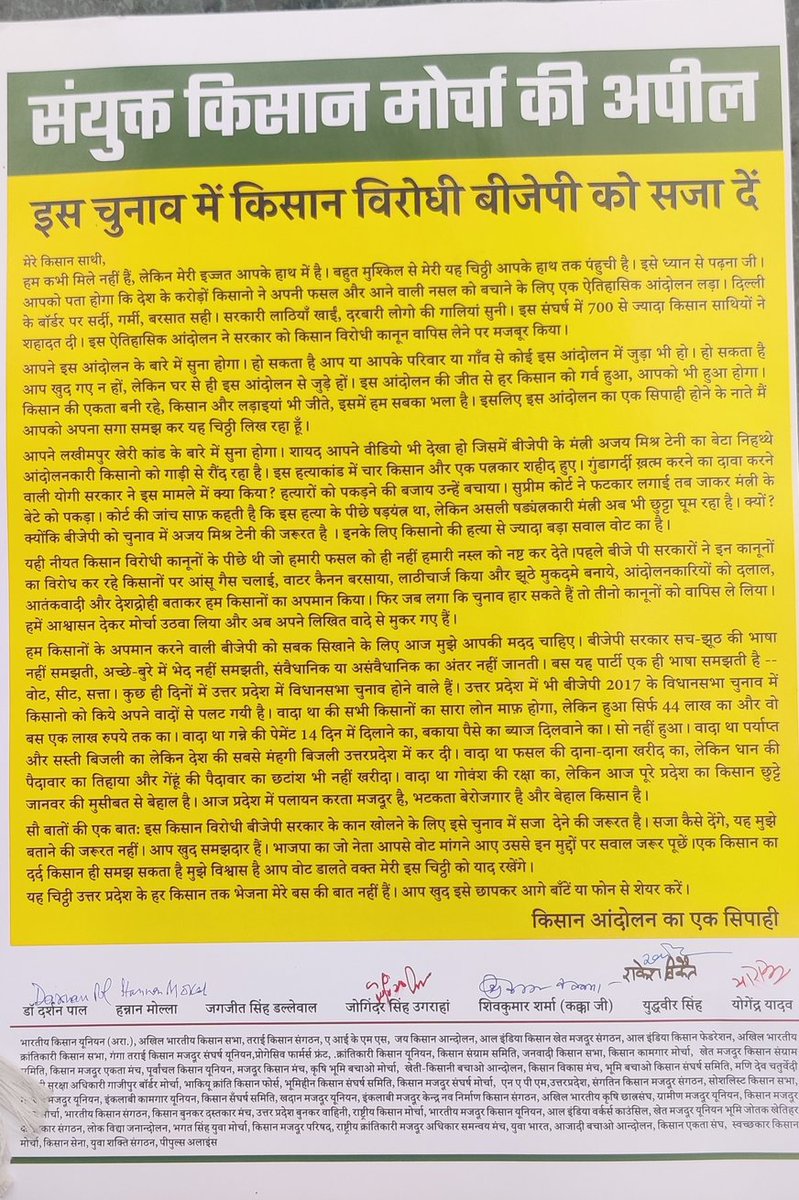 संयुक्त किसान मोर्चा की अपील
इस चुनाव में किसान विरोधी बीजेपी को सजा दें
मेरे किसान साथी,
हम कभी मिले नहीं हैं, लेकिन मेरी इज्जत आपके हाथ में है। बहुत मुश्किल से मेरी यह चिठ्ठी आपके हाथ तक पंहुची है। इसे ध्यान से पढ़ना जी।
आपको पता होगा कि देश के करोड़ों किसानो ने अपनी फसल और आने वाली नसल को बचाने के लिए एक ऐतिहासिक आंदोलन लड़ा। दिल्ली
के बॉर्डर पर सर्दी, गर्मी, बरसात सही। सरकारी लाठियाँ खाईं, दरबारी लोगो की गालियां सुनी। इस संघर्ष में 700 से ज्यादा किसान साथियों ने
शहादत दी। इस ऐतिहासिक आंदोलन ने सरकार को किसान विरोधी कानून वापिस लेने पर मजबूर किया।
आपने इस आंदोलन के बारे में सुना होगा। हो सकता है आप या आपके परिवार या गाँव से कोई इस आंदोलन में जुड़ा भी हो। हो सकता है
आप खुद गए न हों, लेकिन घर से ही इस आंदोलन से जुड़े हों। इस आंदोलन की जीत से हर किसान को गर्व हुआ, आपको भी हुआ होगा।
किसान की एकता बनी रहे, किसान और लड़ाइयां भी जीते, इसमें हम सबका भला है। इसलिए इस आंदोलन का एक सिपाही होने के नाते मैं
आपको अपना सगा समझ कर यह चिठ्ठी लिख रहा हूँ।
आपने लखीमपुर खेरी कांड के बारे में सुना होगा। शायद आपने वीडियो भी देखा हो जिसमें बीजेपी के मंत्री अजय मिश्र टेनी का बेटा निहथ्थे
आंदोलनकारी किसानो को गाड़ी से रौंद रहा है। इस हत्याकांड में चार किसान और एक पत्रकार शहीद हुए। गुंडागर्दी ख़त्म करने का दावा करने
वाली योगी सरकार ने इस मामले में क्या किया? हत्यारों को पकड़ने की बजाय उन्हें बचाया। सुप्रीम कोर्ट ने फटकार लगाई तब जाकर मंत्री के
बेटे को पकड़ा। कोर्ट की जांच साफ़ कहती है कि इस हत्या के पीछे षड़यंत्र था, लेकिन असली षड्यंत्रकारी मंत्री अब भी छुट्टा घूम रहा है। क्यों?
क्योंकि बीजेपी को चुनाव में अजय मिश्र टेनी की जरुरत है । इनके लिए किसानो की हत्या से ज्यादा बड़ा सवाल वोट का है।
यही नीयत किसान विरोधी कानूनों के पीछे थी जो हमारी फसल को ही नहीं हमारी नस्ल को नष्ट कर देते।पहले बीजे पी सरकारों ने इन कानूनों
का विरोध कर रहे किसानों पर आंसू गैस चलाई, वाटर कैनन बरसाया, लाठीचार्ज किया और झूठे मुकदमे बनाये, आंदोलनकारियों को दलाल,
आतंकवादी और देशद्रोही बताकर हम किसानों का अपमान किया। फिर जब लगा कि चुनाव हार सकते हैं तो तीनो कानूनों को वापिस ले लिया।
हमें आश्वासन देकर मोर्चा उठवा लिया और अब अपने लिखित वादे से मुकर गए हैं।
हम किसानों के अपमान करने वाली बीजेपी को सबक सिखाने के लिए आज मुझे आपकी मदद चाहिए। बीजेपी सरकार सच-झूठ की भाषा
नहीं समझती, अच्छे-बुरे में भेद नहीं समझती, संवैधानिक या असंवैधानिक का अंतर नहीं जानती। बस यह पार्टी एक ही भाषा समझती है --
वोट, सीट, सत्ता। कुछ ही दिनों में उत्तर प्रदेश में विधानसभा चुनाव होने वाले हैं। उत्तर प्रदेश में भी बीजेपी 2017 के विधानसभा चुनाव में
किसानो को किये अपने वादों से पलट गयी है। वादा था की सभी किसानों का सारा लोन माफ़ होगा, लेकिन हुआ सिर्फ 44 लाख का और वो
बस एक लाख रुपये तक का। वादा था गन्ने की पेमेंट 14 दिन में दिलाने का, बकाया पैसे का ब्याज दिलवाने का। सो नहीं हुआ। वादा था पर्याप्त
और सस्ती बिजली का लेकिन देश की सबसे मंहगी बिजली उत्तरप्रदेश में कर दी। वादा था फसल की दाना-दाना खरीद का, लेकिन धान की
पैदावार का तिहाया और गेंहूं की पैदावार का छटांश भी नहीं खरीदा। वादा था गोवंश की रक्षा का, लेकिन आज पूरे प्रदेश का किसान छुट्टे
जानवर की मुसीबत से बेहाल है। आज प्रदेश में पलायन करता मजदूर है, भटकता बेरोजगार है और बेहाल किसान है।
सौ बातों की एक बात: इस किसान विरोधी बीजेपी सरकार के कान खोलने के लिए इसे चुनाव में सजा देने की जरूरत है। सजा कैसे देंगे, यह मुझे
बताने की जरूरत नहीं। आप खुद समझदार हैं। भाजपा का जो नेता आपसे वोट मांगने आए उससे इन मुद्दों पर सवाल जरूर पूछें।एक किसान का
दर्द किसान ही समझ सकता है मुझे विश्वास है आप वोट डालते वक्त मेरी इस चिट्ठी को याद रखेंगे।
यह चिट्ठी उत्तर प्रदेश के हर किसान तक भेजना मेरे बस की बात नहीं हैं। आप खुद इसे छापकर आगे बाँटें या फोन से शेयर करें।
किसान आंदोलन का एक सिपाही
डॉ दर्शन पाल हन्नान मोल्ला जगजीत सिंह डल्लेवाल जोगिंदर सिंह उगराहां शिवकुमार शर्मा (कक्का जी) युद्धवीर सिंह योगेंद्र यादव
भारतीय किसान यूनियन (अरा.), अखिल भारतीय किसान सभा, तराई किसान संगठन, ए आई के एम एस, जय किसान आन्दोलन, आल इंडिया किसान खेत मजदुर संगठन, आल इंडिया किसान फेडरेशन, अखिल भारतीय
क्रांतिकारी किसान सभा, गंगा तराई किसान मजदुर संघर्ष यूनियन,प्रोगेसिव फार्मर्स फ्रंट, .क्रांतिकारी किसान यूनियन, किसान संग्राम समिति, जनवादी किसान सभा, किसान कामगार मोर्चा, खेत मजदुर किसान संग्राम
समिति, किसान मजदुर एकता मंच, पूर्वांचल किसान यूनियन, मजदुर किसान मंच, कृषि भूमि बचाओ मोर्चा, खेती-किसानी बचाओ आन्दोलन, किसान विकास मंच, भूमि बचाओ किसान संघर्ष समिति, मणि देव चतुर्वेदी
सुरक्षा अधिकारी गाजीपुर बॉर्डर मोर्चा, भाकियू क्रांति किसान फोर्स, भूमिहीन किसान संघर्ष समिति, किसान मजदुर संघर्ष मोर्चा, एन ए पी एम,उत्तरप्रदेश, संगतिन किसान मजदुर संगठन, सोशलिस्ट किसान सभा,
मजदुर यूनियन, इंकलाबी कामगार यूनियन, किसान सँघर्ष समिति, खदान मजदुर यूनियन, इंकलाबी मजदूर केन्द्र नव निर्माण किसान संगठन, अखिल भारतीय कृषि छात्रसंघ, ग्रामीण मजदुर यूनियन, किसान मजदुर
मोर्चा, भारतीय किसान संगठन, किसान बुनकर दस्तकार मंच, उत्तर प्रदेश बुनकर वाहिनी, राष्ट्रीय किसान मोर्चा, भारतीय मजदुर किसान यूनियन, आल इंडिया वर्कर्स काउंसिल, खेत मजदुर यूनियन भूमि जोतक खेतिहर
संगठन, लोक विद्या जनान्दोलन, भगत सिंह युवा मोर्चा, किसान मजदुर परिषद, राष्ट्रीय क्रांतिकारी मजदुर अधिकार समन्वय मंच, युवा भारत, आजादी बचाओ आन्दोलन, किसान एकता संघ, स्वच्छकार किसान
मोर्चा, किसान सेना, युवा शक्ति संगठन, पीपुल्स अलाइंस